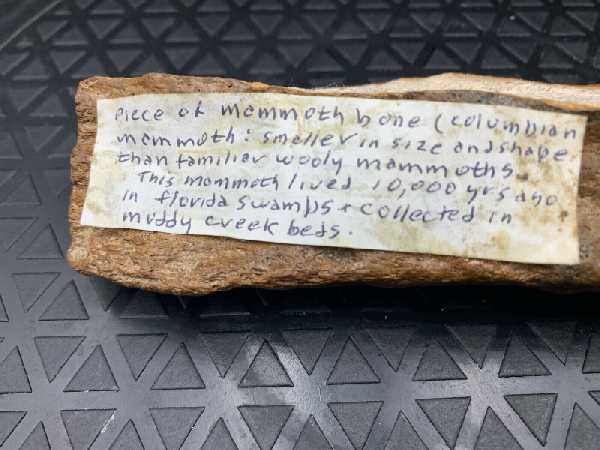 Piece of mammoth bone (columbian
mammoth: smaller in size and shape
than familiar wooly mammoths.
This mammoth lived 10,000 yrs ago
in florida swamps + collected in
muddy creek beds.